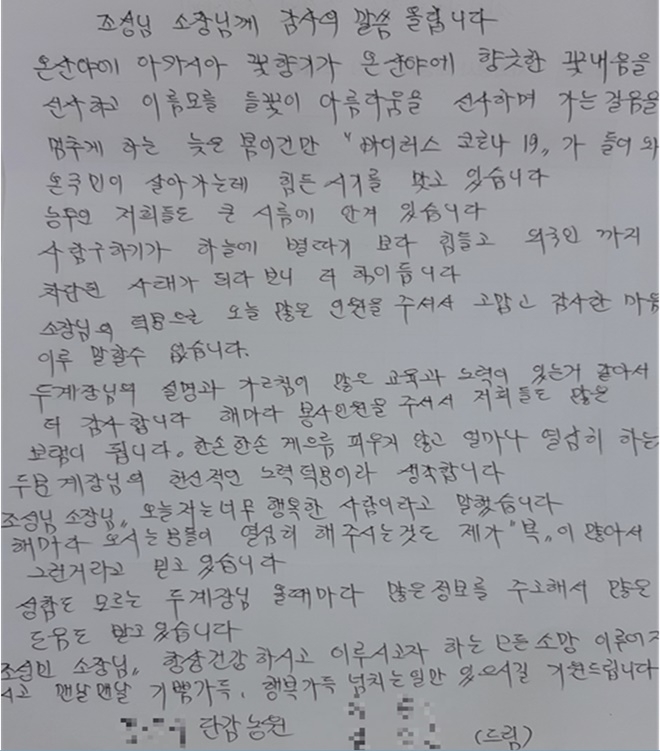 조성님 소장님께 감사의 말씀 올립니다
온산야에 아카시아 꽃향기가 온산야에 향긋한 꽃내음을
선사하고 이름모를 들꽃이 아름다움을 선사하며 가는걸음을
멈추게 하는 늦은 봄이건만 "바이러스 코로나 19" 가 들어 와
온국민이 살아가는레 힘든시기를 맞고 있습니다
농부인 저희들도 큰 시름에 안겨 있습니다
사람구하기가 하늘에 별따기 보다 힘들고 외국인 까지
차단된 사태가 되다 보니 더 힘이듭니다
소장님의 덕용으로 오늘 많은 인원을 주셔서 고맙고 감사한 마음
이루 말할수 없습니다.
두계장님의 설명과 가르침이 많은 교육과 노력이 있는거 같아서
더 감사합니다 해마다 봉사인원을 주셔서 저희들도 많은
보램이 됩니다. 한손한손 게으름 피우지 않고 얼마나 열심히 하는
두분 계장님의 헌신적인 노력덕용이라 생각합니다
조성님 소장님" 오늘저는너무 행복한 사람이라고 말했습니다
해마다 오시는분들이 열심히 해주시는것도 제가 "복"이 많아서
그런거라고 믿고 있습니다
성함도 모르는 두계장님 올때마다 많은정보를 주고해서 많은
도움도 받고있습니다
조성민 소장님" 항상건강하시고 이루시고자 하는 모든소망 이루어지
시고 맨날맨날 기쁨가득, 행복가득 넘치는일만 있으시길 기원드립니다
단감농원 (드림)